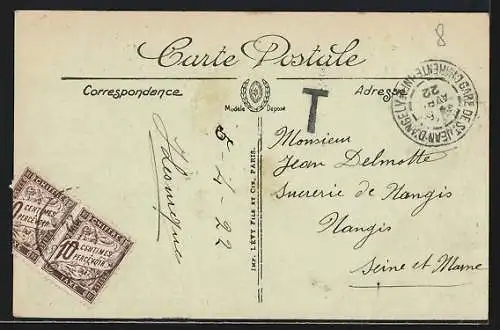 8
Carte Postale
Correspondance
Modèle Déposé
Adresse
T
GARE DE ST JEAN-D'ANGELY
22
5-4-22
IMP. LÉVY FILS ET CIE, PARIS
Monsieur
Jean Delmotte
Sucrerie de Nangis
Nangis
Seine et Marne
CENTIMES
PERCEVOIR
10
CENTIMES
PERCEVOIR
TAXE